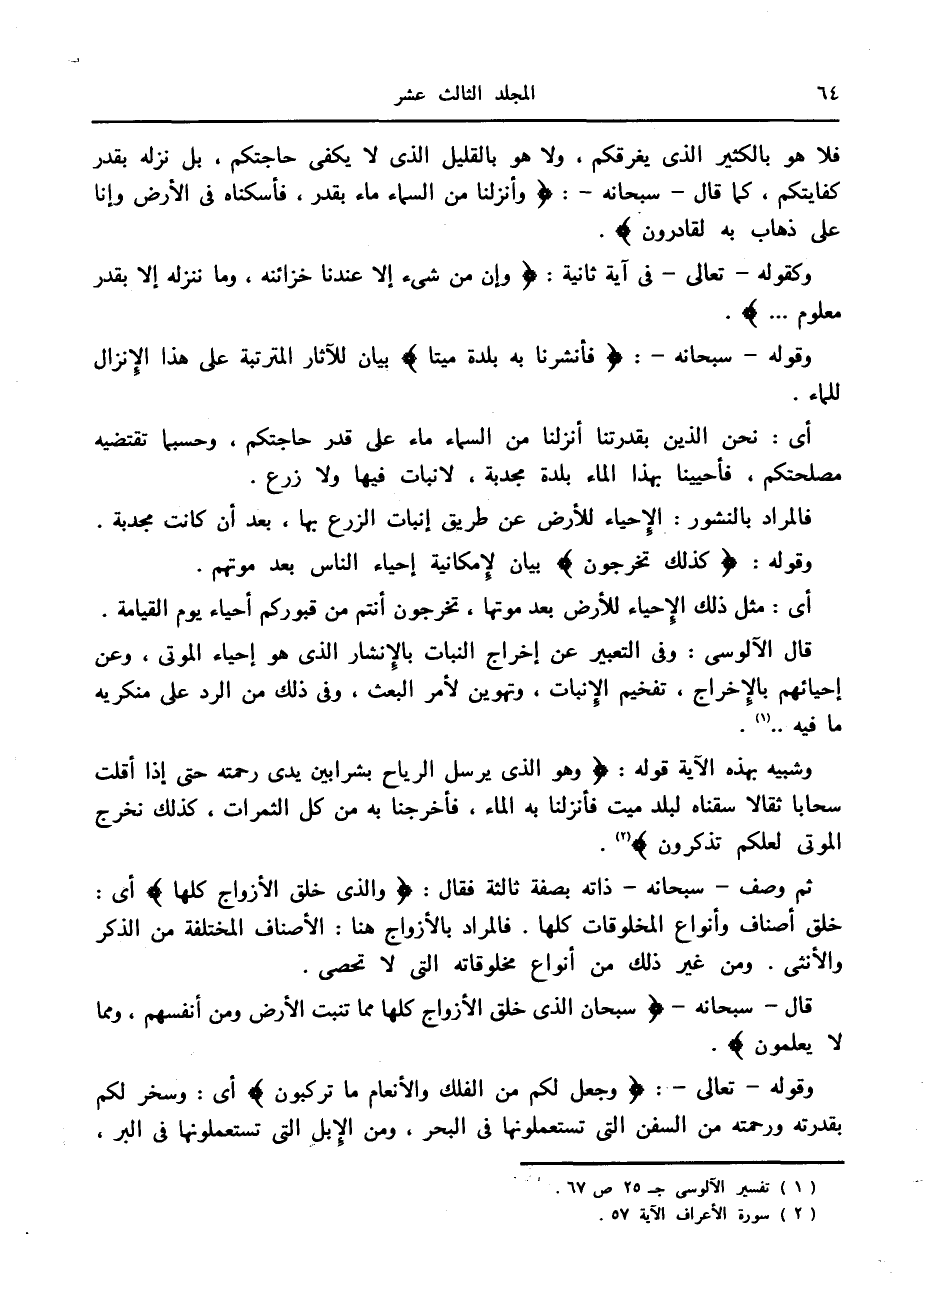 ٦٤
المجلد الثالث عشر
فلا هو بالكثير الذى يغرقكم ، ولا هو بالقليل الذى لا يكفى حاجتكم ، بل نزله بقدر
كفايتكم ، كما قال – سبحانه – : ﴿ وأنزلنا من السماء ماء بقدر ، فأسكناه فى الأرض وإنا
على ذهاب به لقادرون ﴾ .
وكقوله – تعالى – فى آية ثانية : ﴿ وإن من شىء إلا عندنا خزائنه ، وما ننزله إلا بقدر
معلوم ... ﴾ .
وقوله – سبحانه – : ﴿ فأنشرنا به بلدة ميتا ﴾ بيان للآثار المترتبة على هذا الإنزال
للماء .
أى : نحن الذين بقدرتنا أنزلنا من السماء ماء على قدر حاجتكم ، وحسبما تقتضيه
مصلحتكم ، فأحيينا بهذا الماء بلدة مجدبة ، لانبات فيها ولا زرع .
فالمراد بالنشور : الإحياء للأرض عن طريق إنبات الزرع بها ، بعد أن كانت مجدبة .
وقوله : ﴿ كذلك تخرجون ﴾ بيان لإمكانية إحياء الناس بعد موتهم .
أى : مثل ذلك الإحياء للأرض بعد موتها ، تخرجون أنتم من قبوركم أحياء يوم القيامة .
قال الآلوسى : وفى التعبير عن إخراج النبات بالإنشار الذى هو إحياء الموتى ، وعن
إحيائهم بالإخراج ، تفخيم الإنبات ، وتهوين لأمر البعث ، وفى ذلك من الرد على منكريه
ما فيه ..(١) .
وشبيه بهذه الآية قوله : ﴿ وهو الذى يرسل الرياح بشرابين يدى رحمته حتى إذا أقلت
سحابا ثقالا سقناه لبلد ميت فأنزلنا به الماء ، فأخرجنا به من كل الثمرات ، كذلك نخرج
الموتى لعلكم تذكرون ﴾(٢) .
ثم وصف – سبحانه – ذاته بصفة ثالثة فقال : ﴿ والذى خلق الأزواج كلها ﴾ أى :
خلق أصناف وأنواع المخلوقات كلها . فالمراد بالأزواج هنا : الأصناف المختلفة من الذكر
والأنثى . ومن غير ذلك من أنواع مخلوقاته التى لا تحصى .
قال – سبحانه – ﴿ سبحان الذى خلق الأزواج كلها مما تنبت الأرض ومن أنفسهم ، ومما
لا يعلمون ﴾ .
وقوله – تعالى – : ﴿ وجعل لكم من الفلك والأنعام ما تركبون ﴾ أى : وسخر لكم
بقدرته ورحمته من السفن التى تستعملونها فى البحر ، ومن الإبل التى تستعملونها فى البر ،
( ١ ) تفسير الآلوسى جـ ٢٥ ص ٦٧ .
( ٢ ) سورة الأعراف الآية ٥٧ .